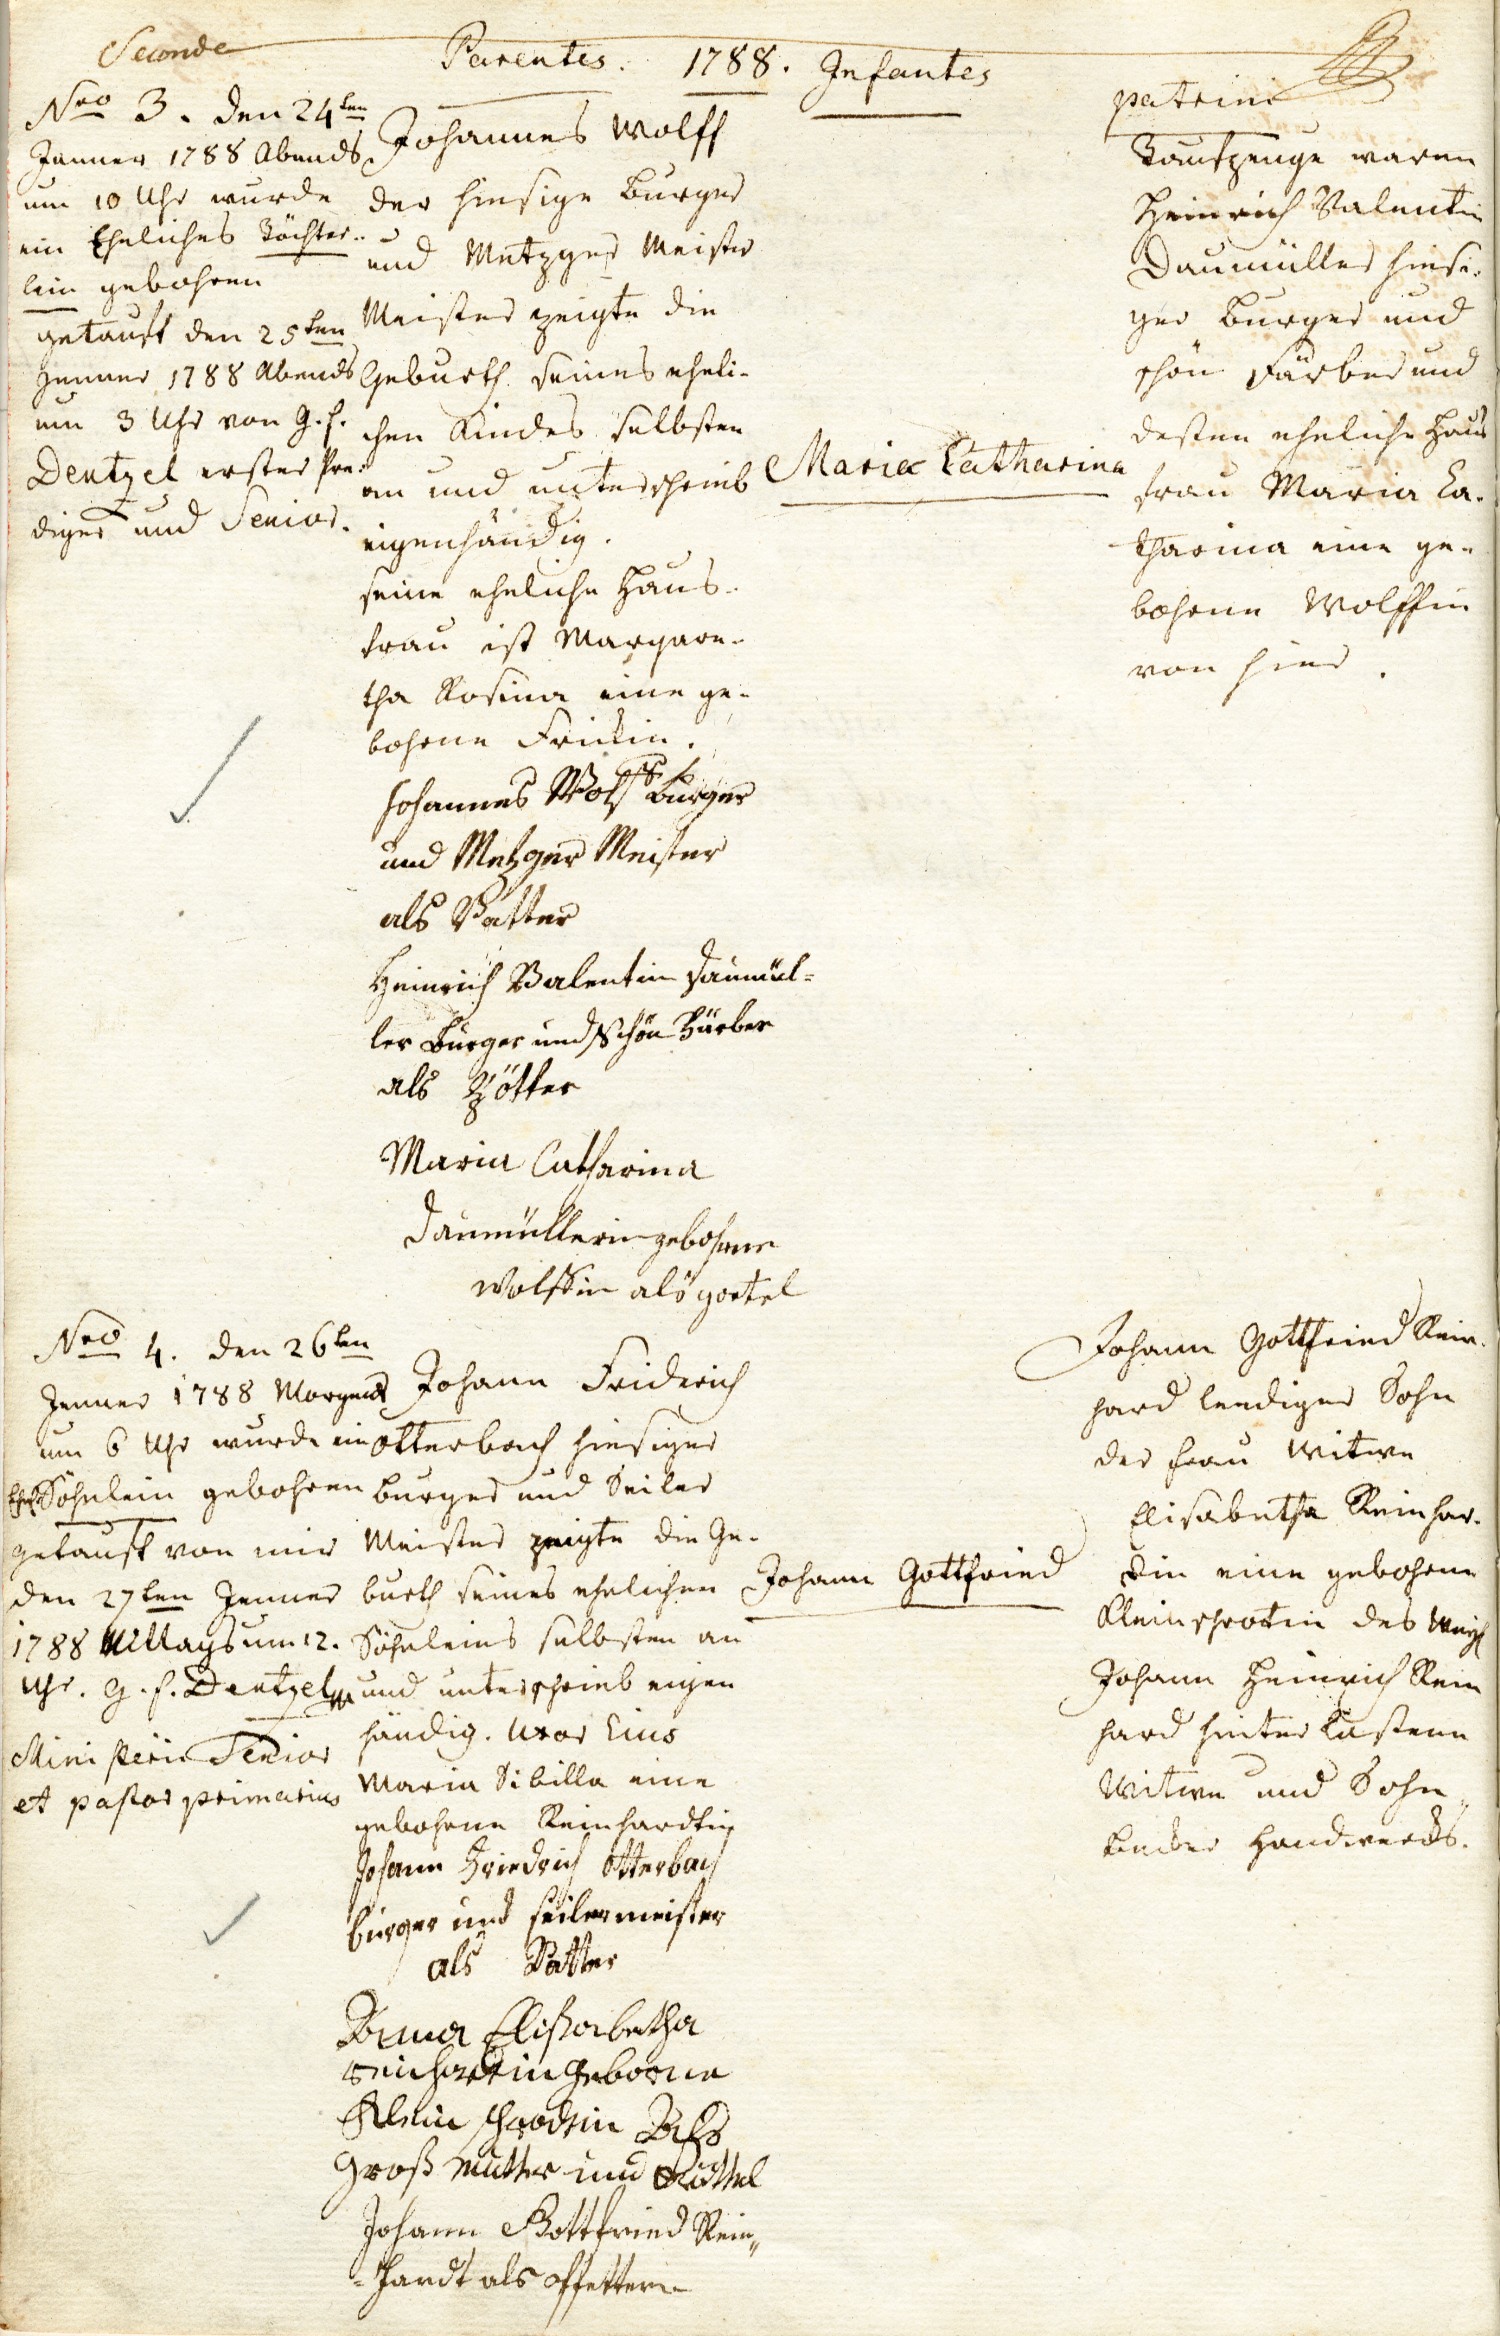 Seconde
Parentes. 1788. Infantes
patrini
Nro 3. den 24ten
Janner 1788 Abends
um 10 Uhr wurde
ein Eheliches Töchter-
lein gebohren
getauft den 25ten
Jenner 1788 Abends
um 3 Uhr von G. f.
Dentzel erster Pre-
diger und Senior.
Johannes Wolff
der hiesige Burger
und Metzger Meister
Meister zeigte die
Geburth seines eheli-
chen Kindes selbsten
an und unterschrieb
eigenhändig.
seine eheliche Haus-
frau ist Margare-
tha Rosina eine ge-
bohrne Frickin.
Johannes Wolff Burger
und Metzger Meister
als Vatter
Heinrich Valentin Daumül-
ler Burger und Schön Färber
als Pfötter
Maria Catharina
Daumüllerin gebohrne
Wolffin als goetel
Maria Catharina
Taufzeuge waren
Heinrich Valentin
Daumüller hiesi-
ger Burger und
schön Färber und
dessen eheliche Haus
frau Maria Ca-
tharina eine ge-
bohrne Wolffin
von hier.
Nro 4. den 26ten
Jenner 1788 Morgends
um 6 Uhr wurde ein
Ehel. Söhnlein gebohren
getauft von mir
den 27ten Jenner
1788 Mittags um 12.
Uhr. G. f. Dentzel
Ministerii Senior
et pastor primarius
Johann Friderich
Otterbach hiesiger
Burger und Seiler
Meister zeigte die Ge-
burth seines ehelichen
Söhnleins selbsten an
und unterschrieb eigen
händig. Uxor Eius
Maria Sibilla eine
gebohrne Reinhardtin
Johann Friedrich Otterbach
burger und seilermeister
als Vatter
Anna Elisabetha
reinhartin geborne
Klein schrodtin Als
Groß Mutter und Göttel
Johann Gottfried Rein-
hardt als Pfettern
Johann Gottfried
Johann Gottfried Rein-
hard lediger Sohn
der Frau Witwe
Elisabetha Reinhar-
din eine gebohrne
Kleinschrotin des Weyl
Johann Heinrich Rein
hard hinterlassene
Witwe und Sohn
Becker Handwercks.